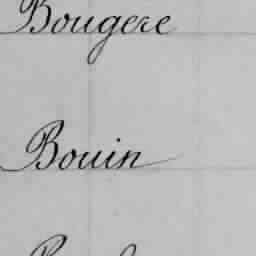 Bougere
Bouin